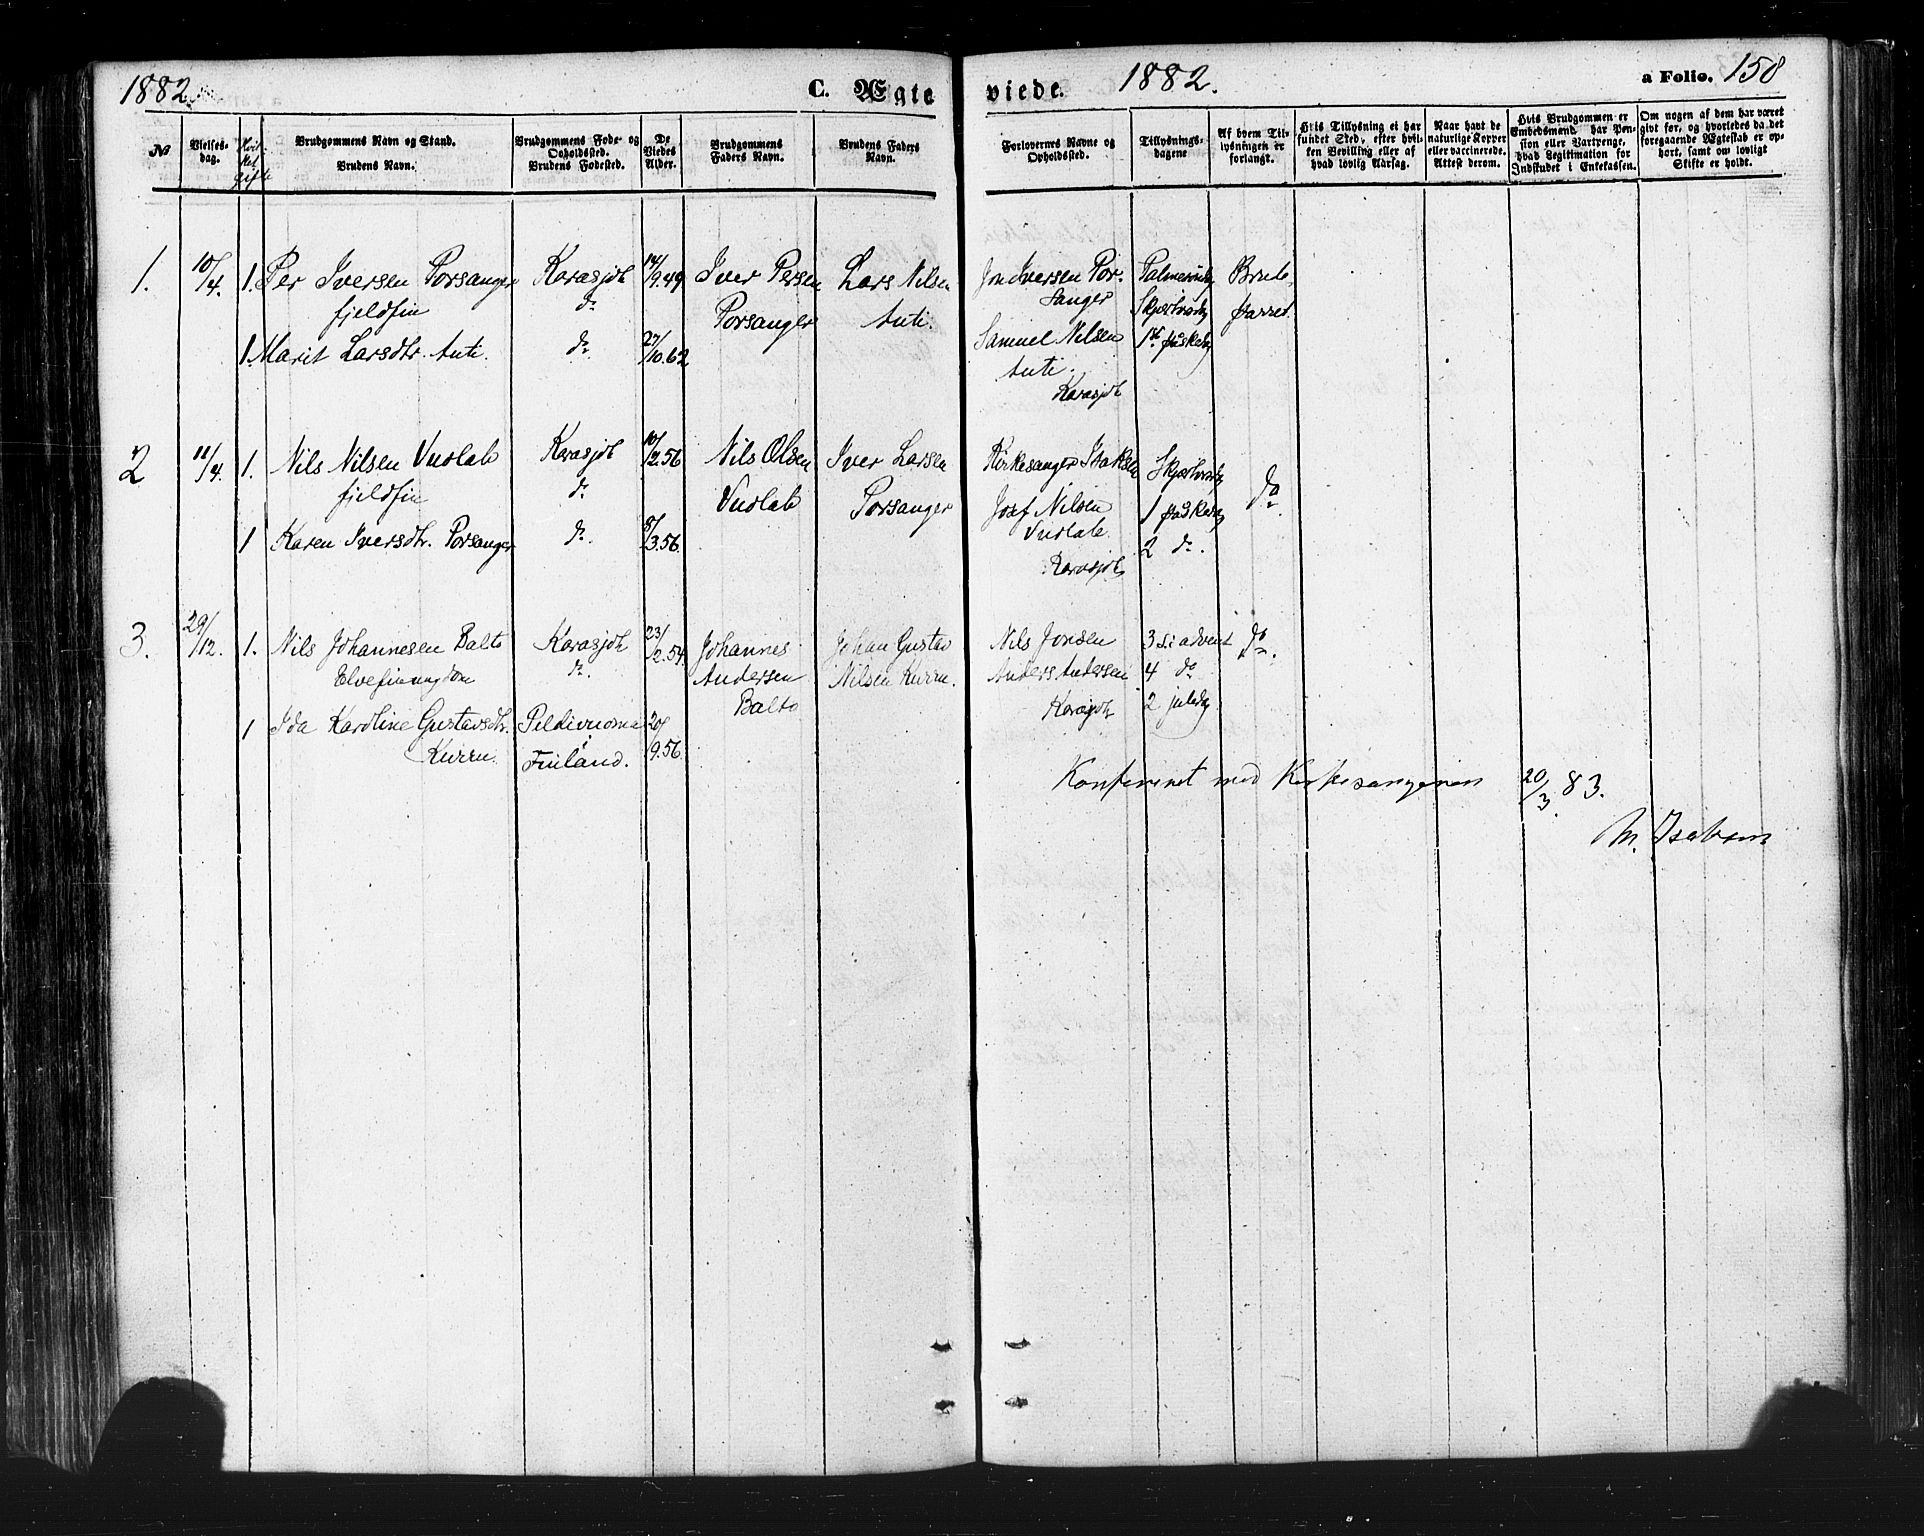 1882
C. Ægteviede.
1882.
a Folio. 158
№
Vielsesdag.
Hvilket Gifte
Brudgommens Navn og Stand.
Brudens Navn.
Brudgommens Føde- og Opholdssted.
Brudens Fødested.
De Viedes Alder.
Brudgommens Faders Navn.
Brudens Faders Navn.
Forlovernes Navne og Opholdssted.
Tillysningsdagene
Af hvem Tillysningen er forlangt.
Hvis Tillysning ei har fundet Sted, efter hvilken Bevilling eller af hvad lovlig Aarsag.
Naar havt de naturlige Kopper eller vaccinerede. Attest derom.
Hvis Brudgommen er Embedsmand, har Pension eller Vartpenge, hvad Legitimation for Indskudet i Enkekassen.
Om nogen af dem har været givt før, og hvorledes da det foregaaende Ægteskab er ophørt, samt om lovligt Skifte er holdt.
1. 10/4. 1. Per Iversen Porsanger Karasjok 14/9.49 Iver Persen Lars Nilsen Jon Iversen Por- Palmesøndg Brude-
fjeldfin do Porsanger Anti. sanger Skjærtorsdg parret.
1. Marit Larsdtr. Anti. do 27/10.62 Samuel Nilsen 1st påskedg
Anti.
Karasjok
2 11/4. 1. Nils Nilsen Vuolab Karasjok 10/12.56 Nils Olsen Iver Larsen Kirkesanger Isaksen Skjærtorsdg do
fjeldfin do. Vuolab Porsanger Josef Nilsen 1 påskedg
1 Karen Iversdtr. Porsanger do. 8/3.56. Vuolab. 2 do.
Karasjok
3. 29/12. 1. Nils Johannesen Balto Karasjok 23/2.54. Johannes Johan Gustav Nils Jonsen 3 s.i advent do.
Elvefinungdom do. Andersen Nilsen Kurru. Anders Andersen 4 do
Balto Karasjok 2 juledg
1 Ida Karoline Gustavsdtr. Peldivuoma 20/9.56.
Kurru. Finland.
Konfereret med Kirkesangeren 20/3. 83.
M. Isaksen